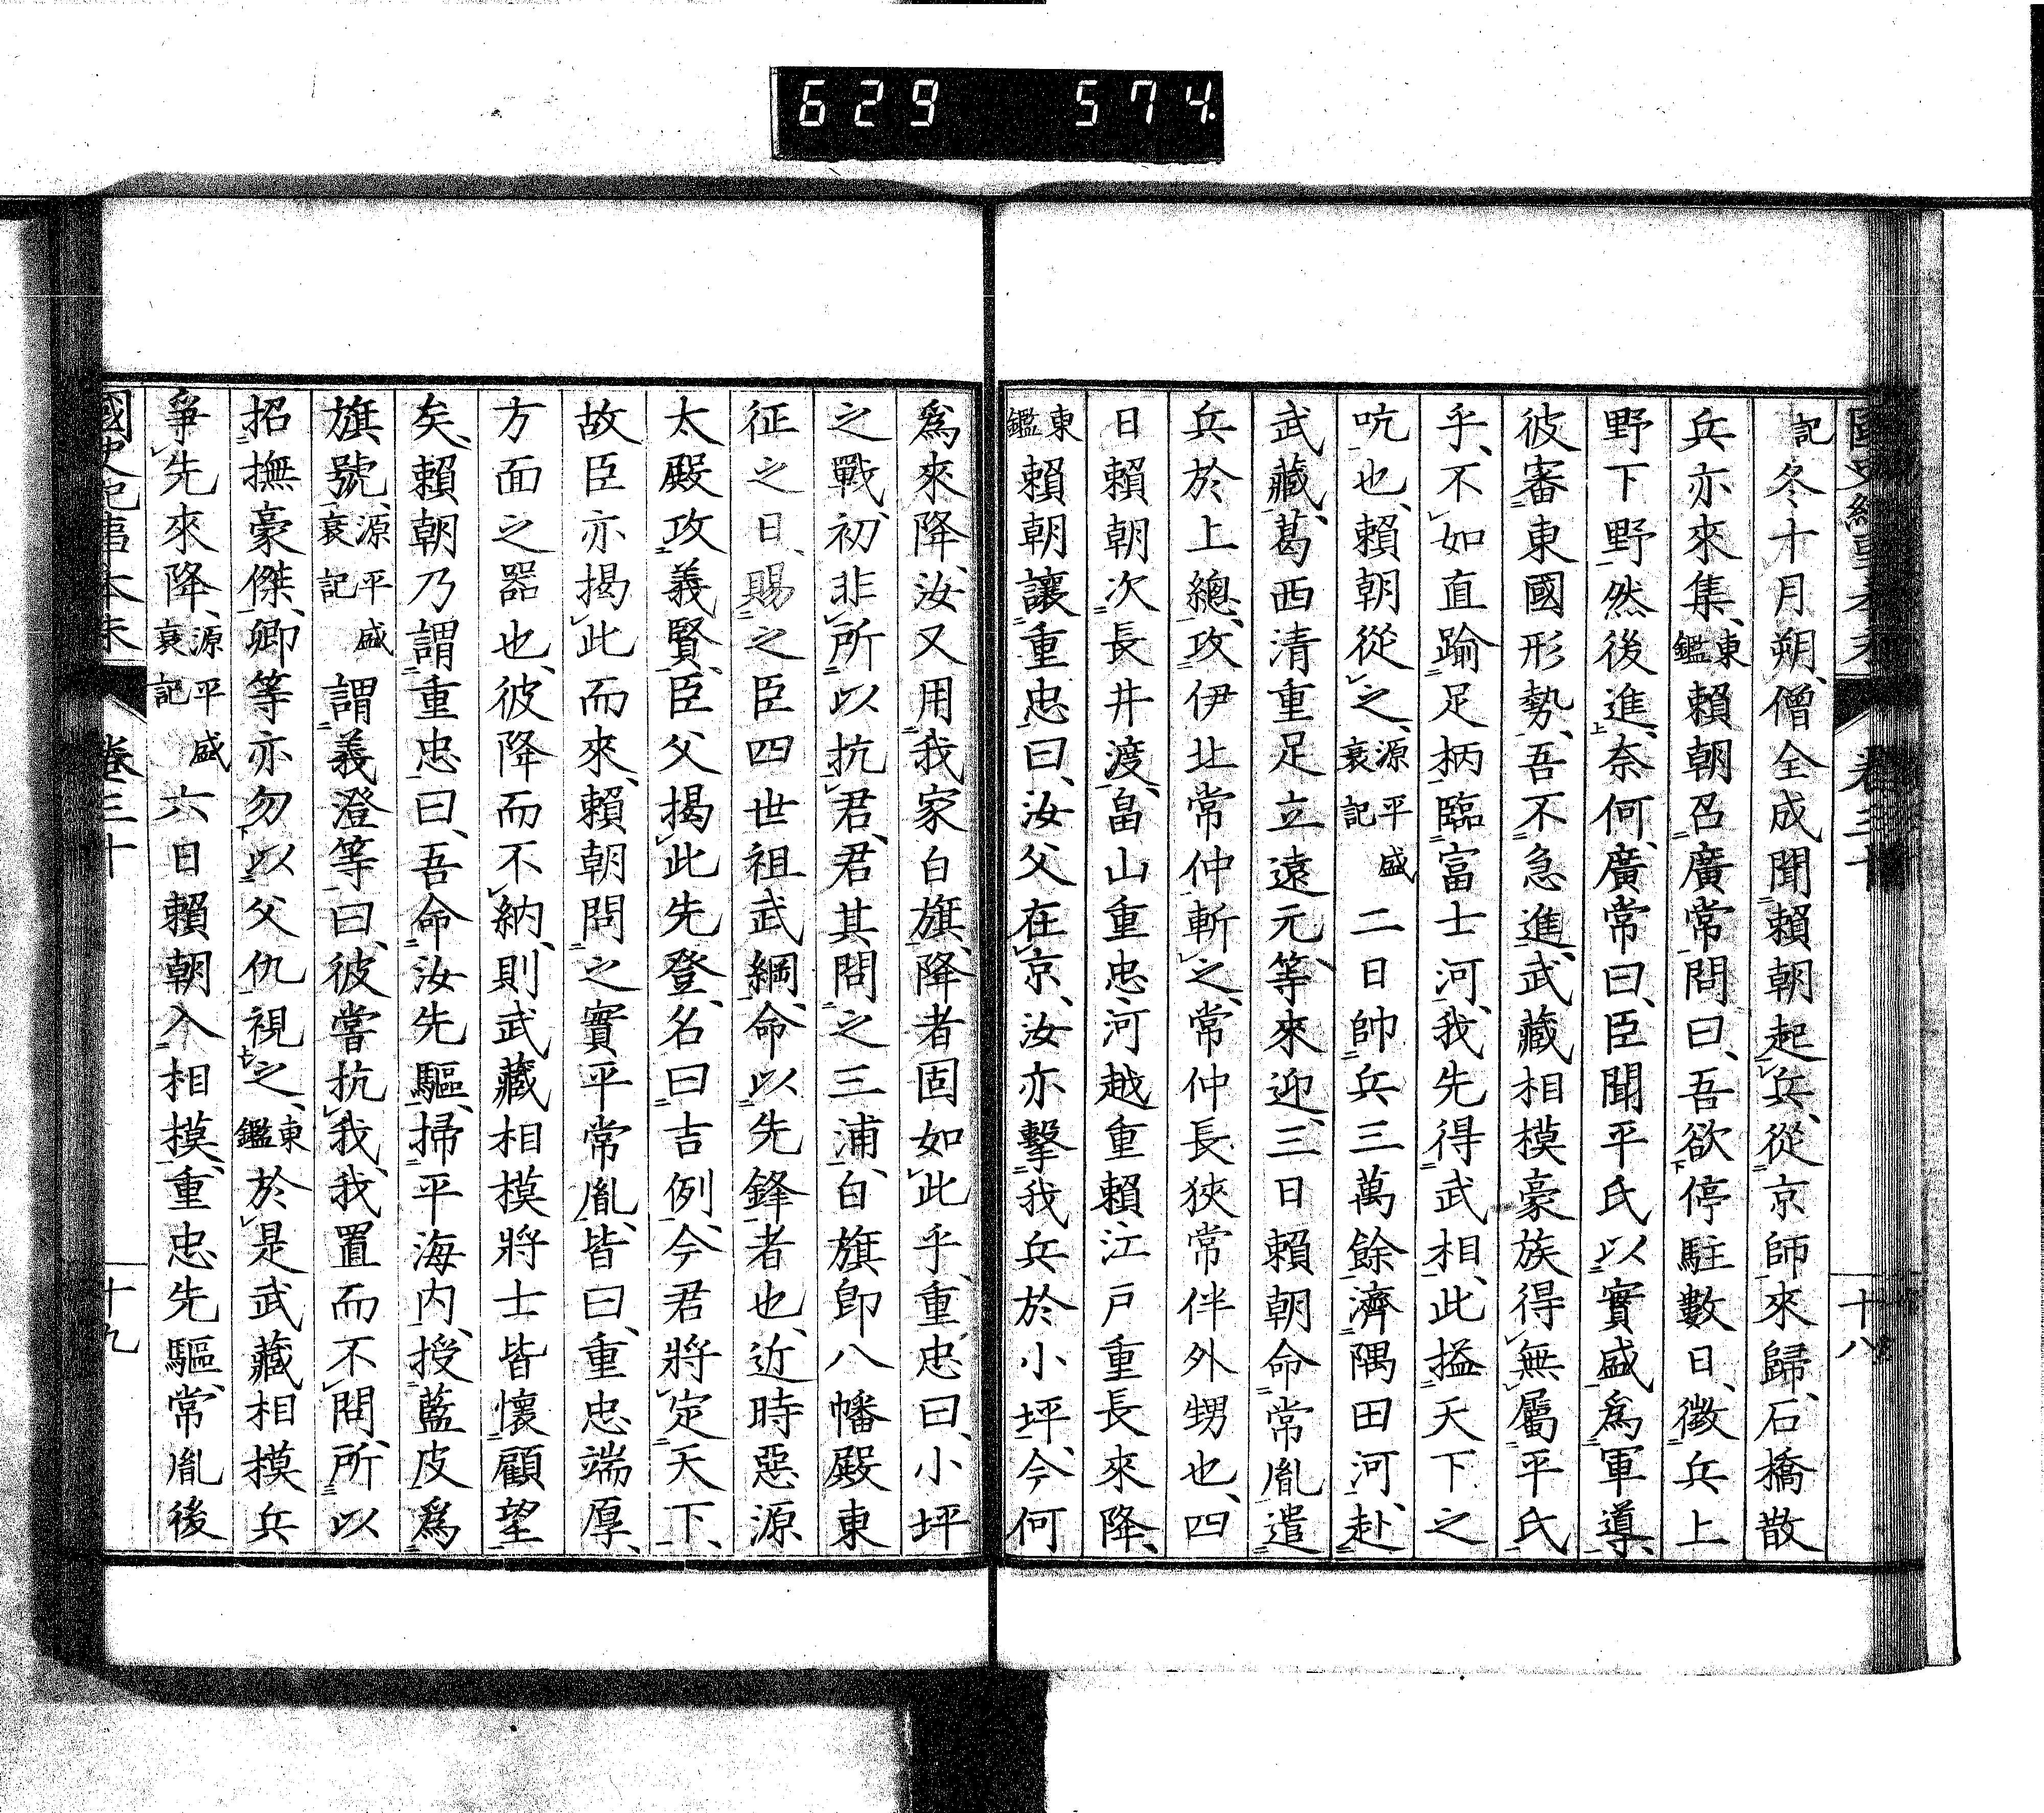 629 574
國史紀事本末 卷三十 十八
記冬十月朔、僧全成聞賴朝起兵、從京師來歸、石橋散
兵亦來集、東鑑賴朝召廣常問曰、吾欲停駐數日、徵兵上
野下野、然後進、奈何、廣常曰、臣聞平氏以實盛爲軍導、
彼審東國形勢、吾不急進、武藏相模豪族得無屬平氏
乎、不如直踰足柄、臨富士河、我先得武相、此搤天下之
吭也、賴朝從之、源平盛衰記二日帥兵三萬餘濟隅田河、赴
武藏、葛西清重足立遠元等、來迎、三日賴朝命常胤遣
兵於上總、攻伊北常仲斬之、常仲長狹常伴外甥也、四
日賴朝次長井渡、畠山重忠河越重賴江戸重長來降、
東鑑賴朝讓重忠曰、汝父在京、汝亦擊我兵於小坪、今何
爲來降、汝又用我家白旗、降者固如此乎、重忠曰、小坪
之戰、初非所以抗君、君其問之三浦、白旗卽八幡殿東
征之日、賜之臣四世祖武綱、命以先鋒者也、近時惡源
太殿攻義賢、臣父揭此先登、名曰吉例、今君將定天下、
故臣亦揭此而來、賴朝問之實平常胤、皆曰、重忠端厚、
方面之器也、彼降而不納、則武藏相模將士皆懷顧望
矣、賴朝乃謂重忠曰、吾命汝先驅、掃平海内、授藍皮爲
旗號、源平盛衰記謂義澄等曰、彼嘗抗我、我置而不問、所以
招撫豪傑、卿等亦勿以父仇視之、東鑑於是武藏相模兵
爭先來降、源平盛衰記六日賴朝入相模、重忠先驅、常胤後
國史紀事本末 卷三十 十九